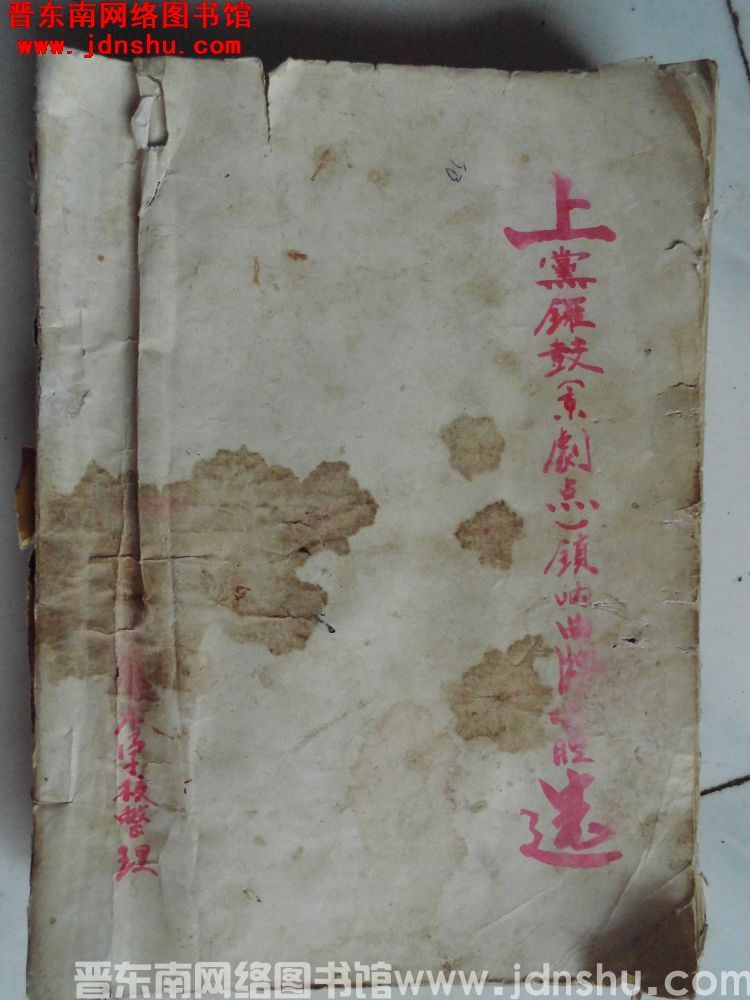 晋东南网络图书馆
www.jdnshu.com
上黨鑼鼓(京劇点)鎖吶曲牌 腔选
整理
晋东南网络图书馆www.jdnshu.com